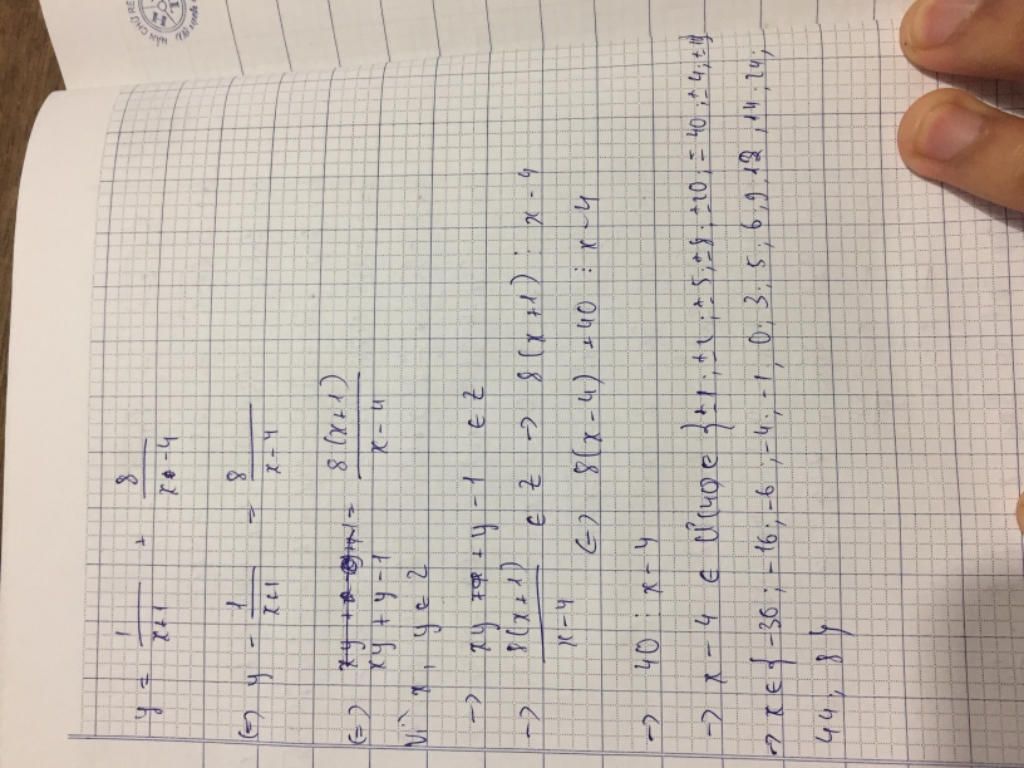 y = 1/(x+1) + 8/(x-4)
(=) y - 1/(x+1) = 8/(x-4)
(=) xy + y - 1 = 8(x+1)/(x-4)
Vì x, y ∈ Z
-> xy + y - 1 ∈ Z
-> 8(x+1)/(x-4) ∈ Z -> 8(x+1) ⋮ x-4
(=) 8(x-4) + 40 ⋮ x-4
-> 40 ⋮ x-4
-> x-4 ∈ Ư(40) ∈ {±1; ±2; ±5; ±8; ±20; ±40; ±4; ±
-> x ∈ {-36; -16; -6; -4; -1; 0; 3; 5; 6; 9; 12; 14; 24;
44; 8}